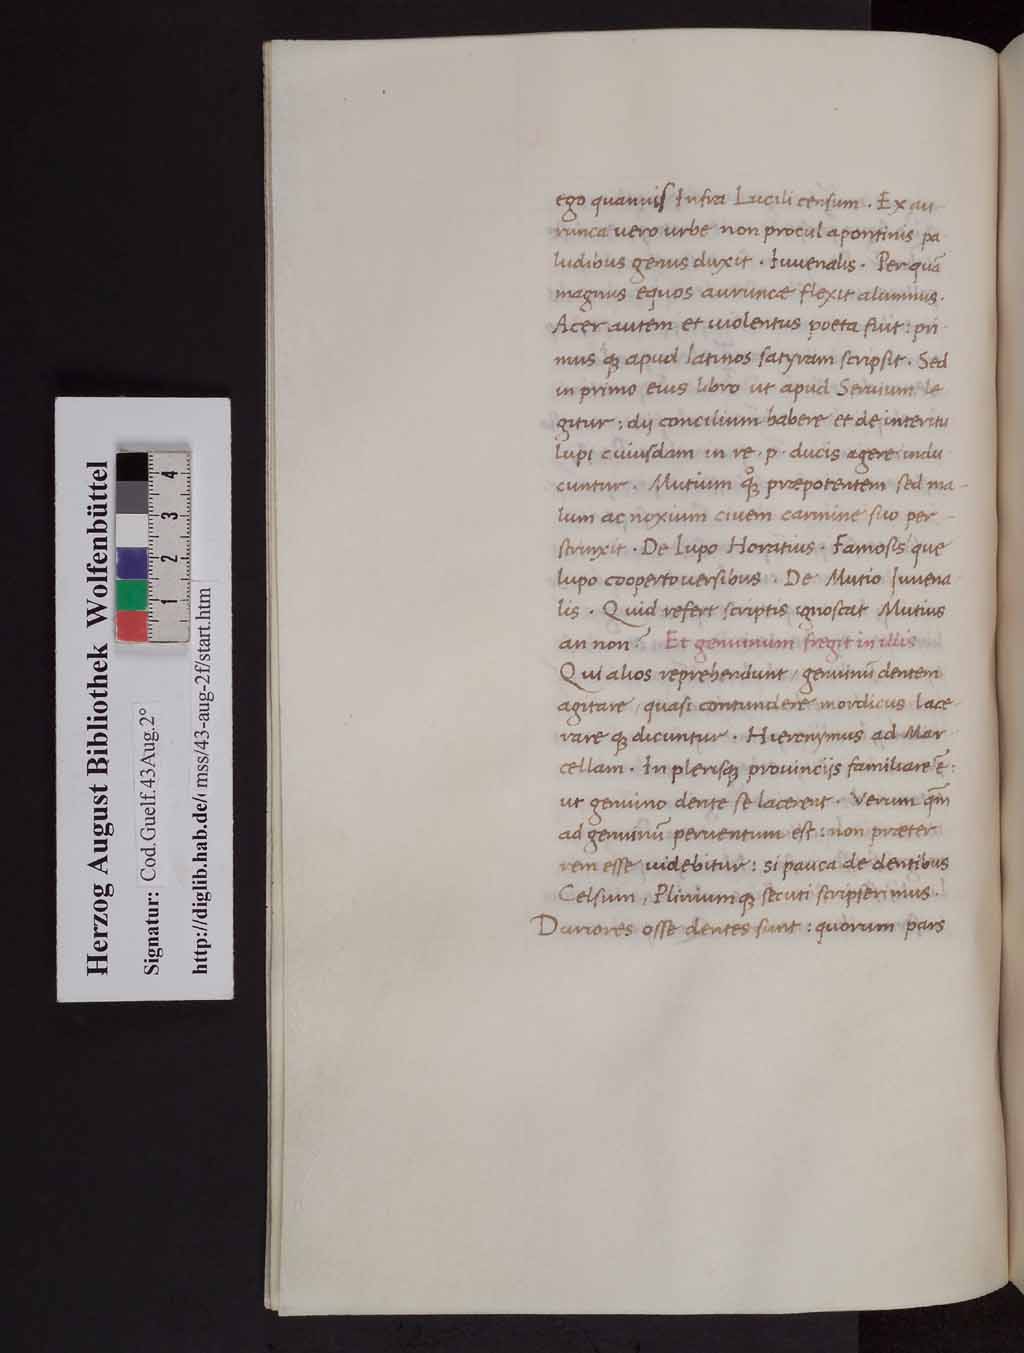 ego quamuis Infra Lucili censum . Ex au
runca vero urbe non procul apontinis pa
ludibus genus duxit . Iuuenalis . Per quā
magnus equos auruncæ flexit alumnus .
Acer autem et uiolentus poeta fuit : pri
mus q; apud latinos satyram scripsit . Sed
in primo eius libro ut apud Seruium le
gitur : dij concilium habere et de interitu
lupi cuiusdam in re . p . ducis agere indu
cuntur . Mutium qͦq; præpotentem sed ma-
lum ac noxium ciuem carmine suo per-
strinxit . De Lupo Horatius . Famosis que
lupo coopertouersibus . De Mutio Iuuena
lis . Quid refert scriptis ignoscat Mutius
an non ? Et genuinum fregit in illis
Qui alios reprehendunt / genuinū dentem
agitare / quasi contundere mordicus lace
rare q; dicuntur . Hieronymus ad Mar
cellam . In plerisq; prouincijs familiare ē :
ut genuino dente se lacerent . Verum qm̄
ad genuinū peruentum est : non præter
rem esse uidebitur : si pauca de dentibus
Celsum , Plinium q; secuti scripserimus .
Duriores osse dentes sunt : quorum pars
Herzog August Bibliothek Wolfenbüttel
Signatur: Cod.Guelf.43Aug.2°
http://diglib.hab.de/ mss/43-aug-2f/start.htm
1 2 3 4